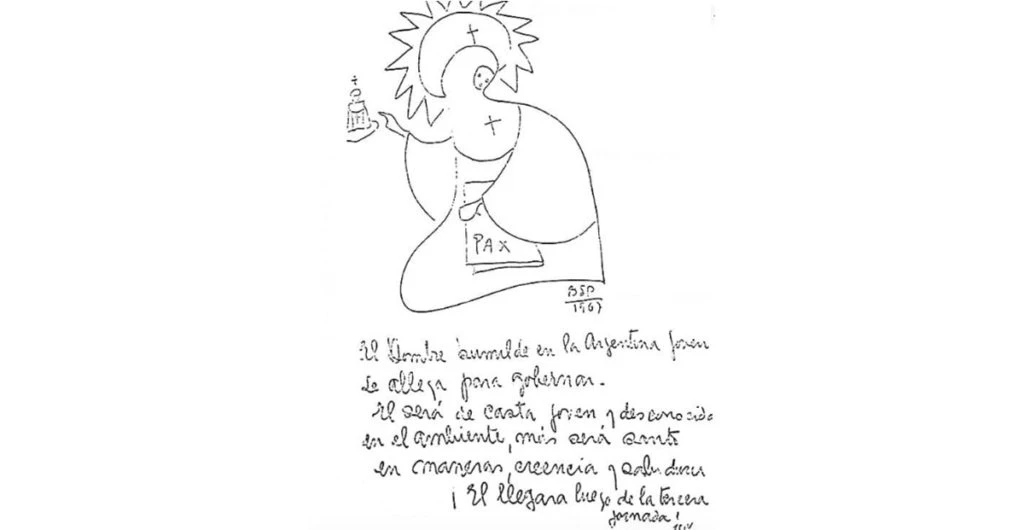 PAX
BSP
1967
El Hombre humilde en la Argentina joven
se allega para gobernar.
El será de casta joven y desconocido
en el ambiente, más será santo
en maneras, creencia y sabiduria
¡El llegara luego de la tercera
jornada!